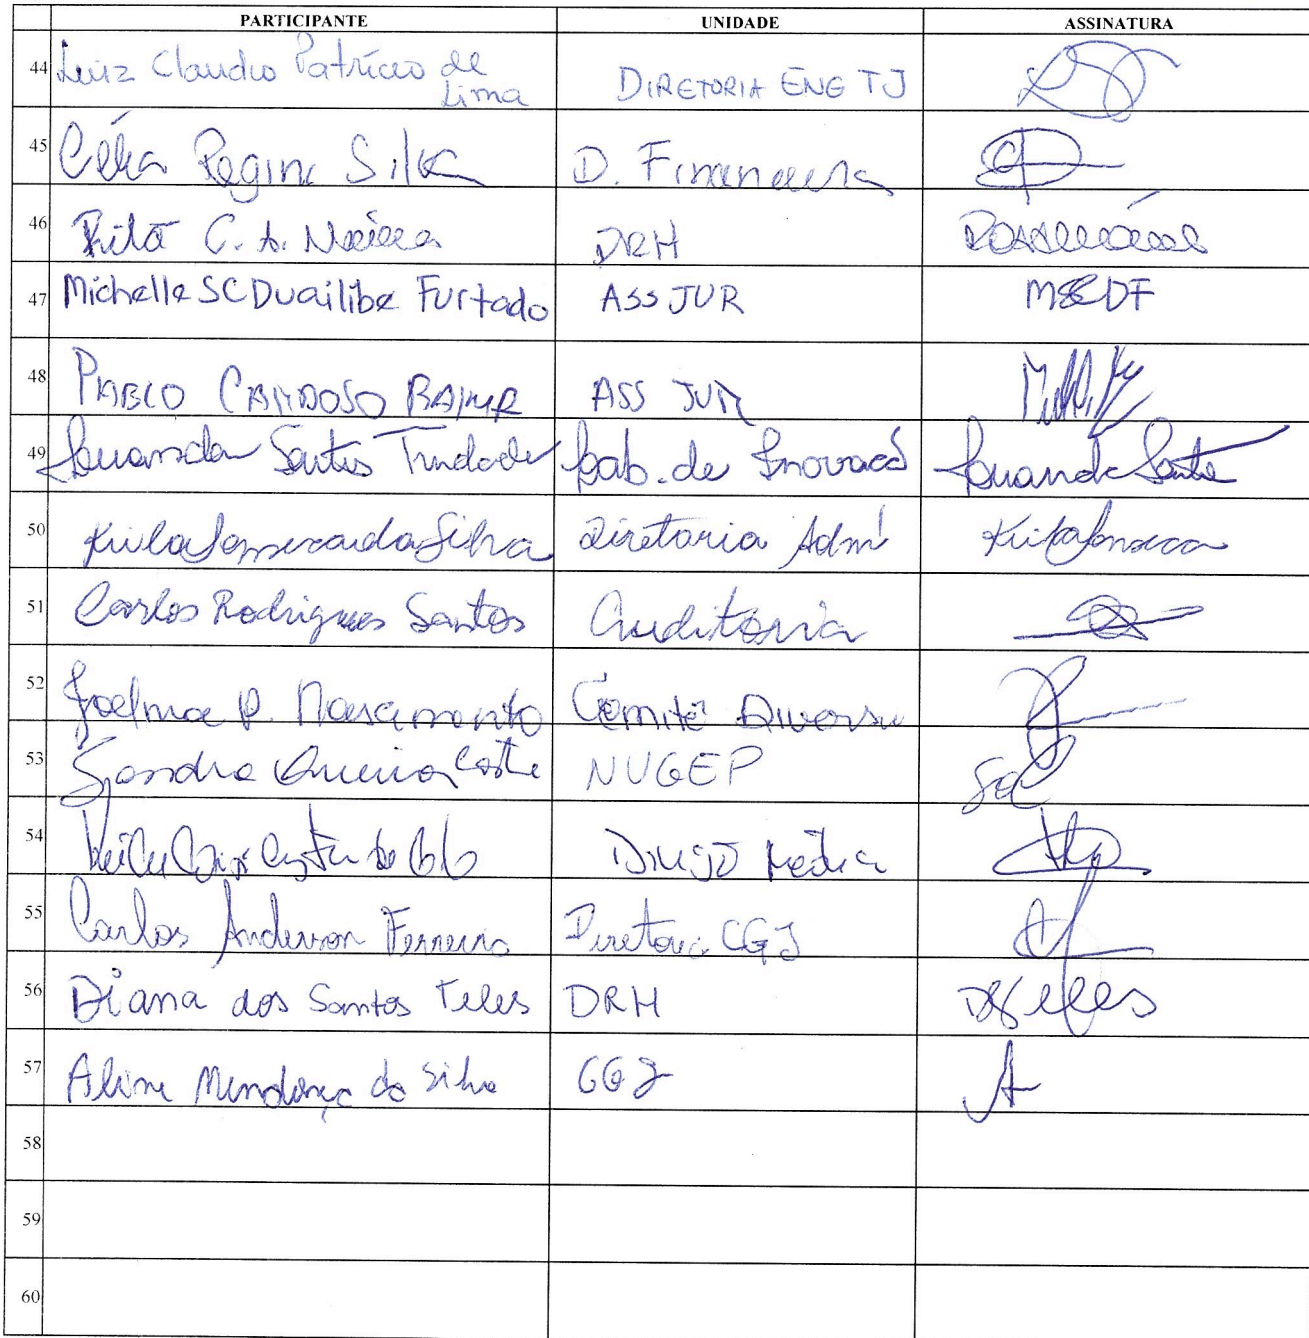 PARTICIPANTE UNIDADE ASSINATURA
44 Luiz Claudio Patrício de Lima DIRETORIA ENG TJ
45 Célia Regina Silva D. Financeira
46 Rita C. A. DRH
47 Michelle SC Duailibe Furtado ASS JUR MSCDF
48 PABLO CARDOSO ASS JUR
49 Luanda Santos Trindade Lab. de Inovação Luanda Santo
50 Keila Fonseca da Silva Diretoria Adm Keila Fonseca
51 Carlos Rodrigues Santos Auditoria
52 Joelma P. Nascimento Comitê Diversi
53 Sandra Costa NUGEP
54
55 Carlos Anderson Ferreira Diretoria CGJ
56 Diana dos Santos Teles DRH DSTeles
57 Aline Mendonça da Silva CGJ A
58
59
60